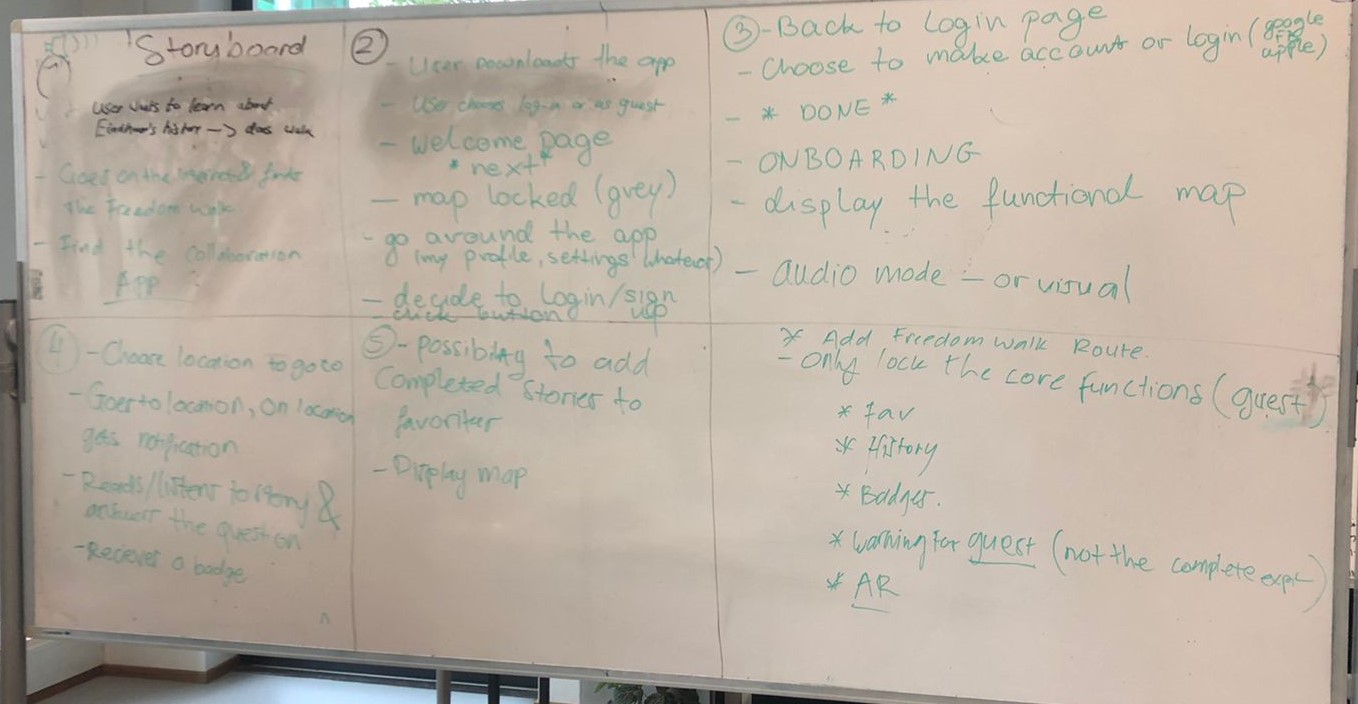 Storyboard
①
User wants to learn about
Eindhoven's history -> does walk
- Goes on the internet & finds
the Freedom walk
- Find the collaboration
App
②
- User Downloads the app
- User chooses login or as guest
- welcome page
* next *
- map locked (grey)
- go around the app
(my profile, settings whatever)
- decide to login/sign up
- click button
③ - Back to login page
- Choose to make account or login (google apple)
- * DONE *
- ONBOARDING
- display the functional map
- audio mode - or visual
④ - Choose location to go to
- Goes to location, on location
gets notification
- Reads/listens to story &
answers the question
- Recieves a badge
⑤ - possibility to add
completed stories to
favorites
- Display map
* Add Freedom walk Route.
- only lock the core functions (guest)
* fav
* History
* Badges.
* Warning for guest (not the complete exp)
* AR